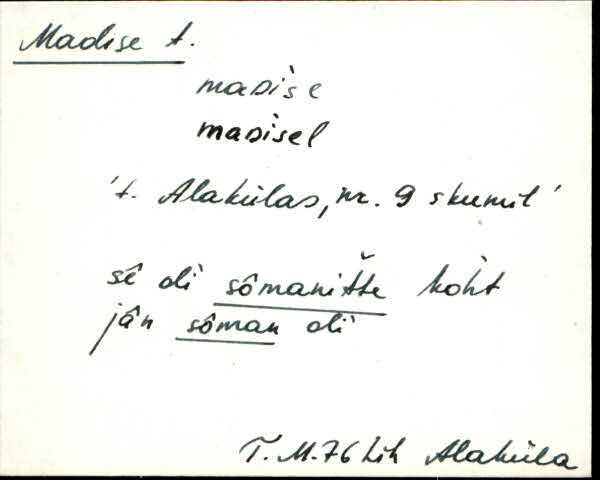 Madise t.
maᴅiˋs e
maᴅiˋsel
't. Alakülas, nr. 9 skemil'
sê oliˋ sômanitťe koh́t
jân sôman oliˋ
T. M. 76 Lih Alaküla